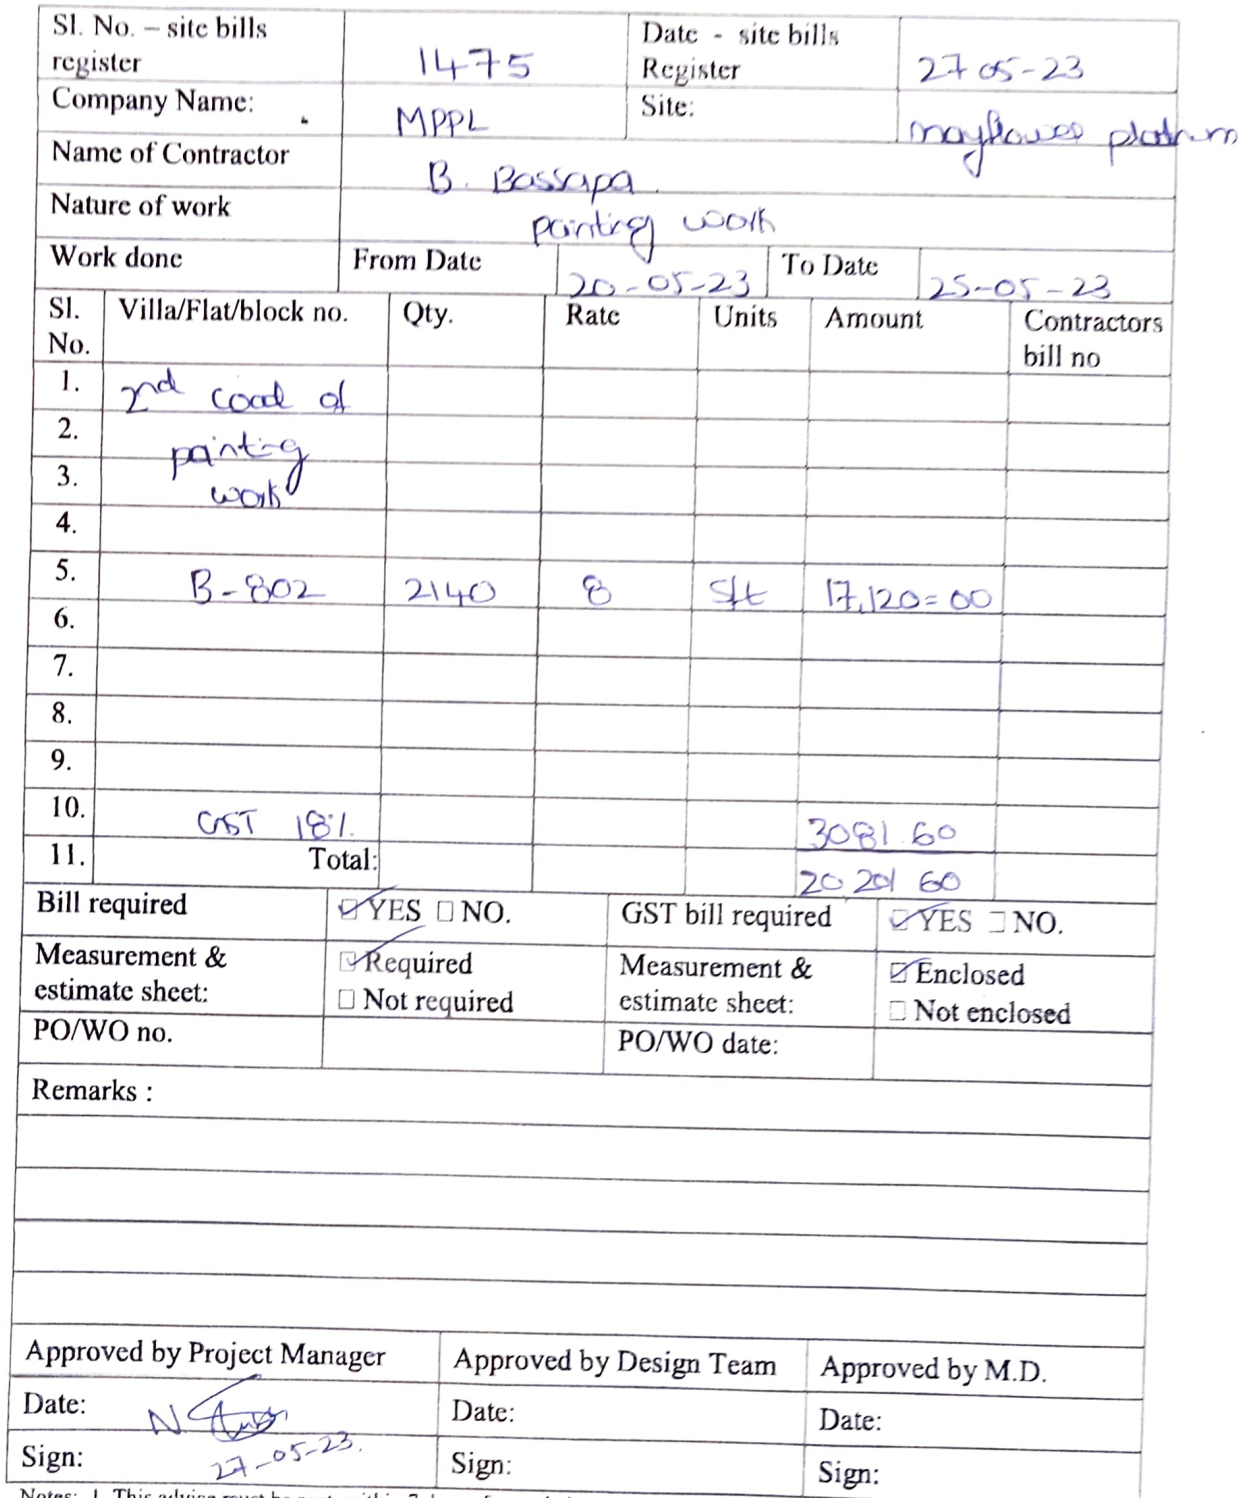 Sl. No. – site bills register 1475 Date - site bills Register 27 05-23
Company Name: MPPL Site: mayflower platinum
Name of Contractor B. Bassapa
Nature of work painting work
Work done From Date 20-05-23 To Date 25-05-23
Sl. No. Villa/Flat/block no. Qty. Rate Units Amount Contractors bill no
1. 2nd coad of
2. painting
3. work
4.
5. B-802 2140 8 Sft 17,120=00
6.
7.
8.
9.
10. GST 18% 3081 60
11. Total: 20 201 60
Bill required ☑ YES ☐ NO. GST bill required ☑ YES ☐ NO.
Measurement & estimate sheet: ☑ Required ☐ Not required Measurement & estimate sheet: ☑ Enclosed ☐ Not enclosed
PO/WO no. PO/WO date:
Remarks :
Approved by Project Manager Approved by Design Team Approved by M.D.
Date: N. Date: Date:
Sign: 27-05-23. Sign: Sign:
Notes: 1. This advice must be